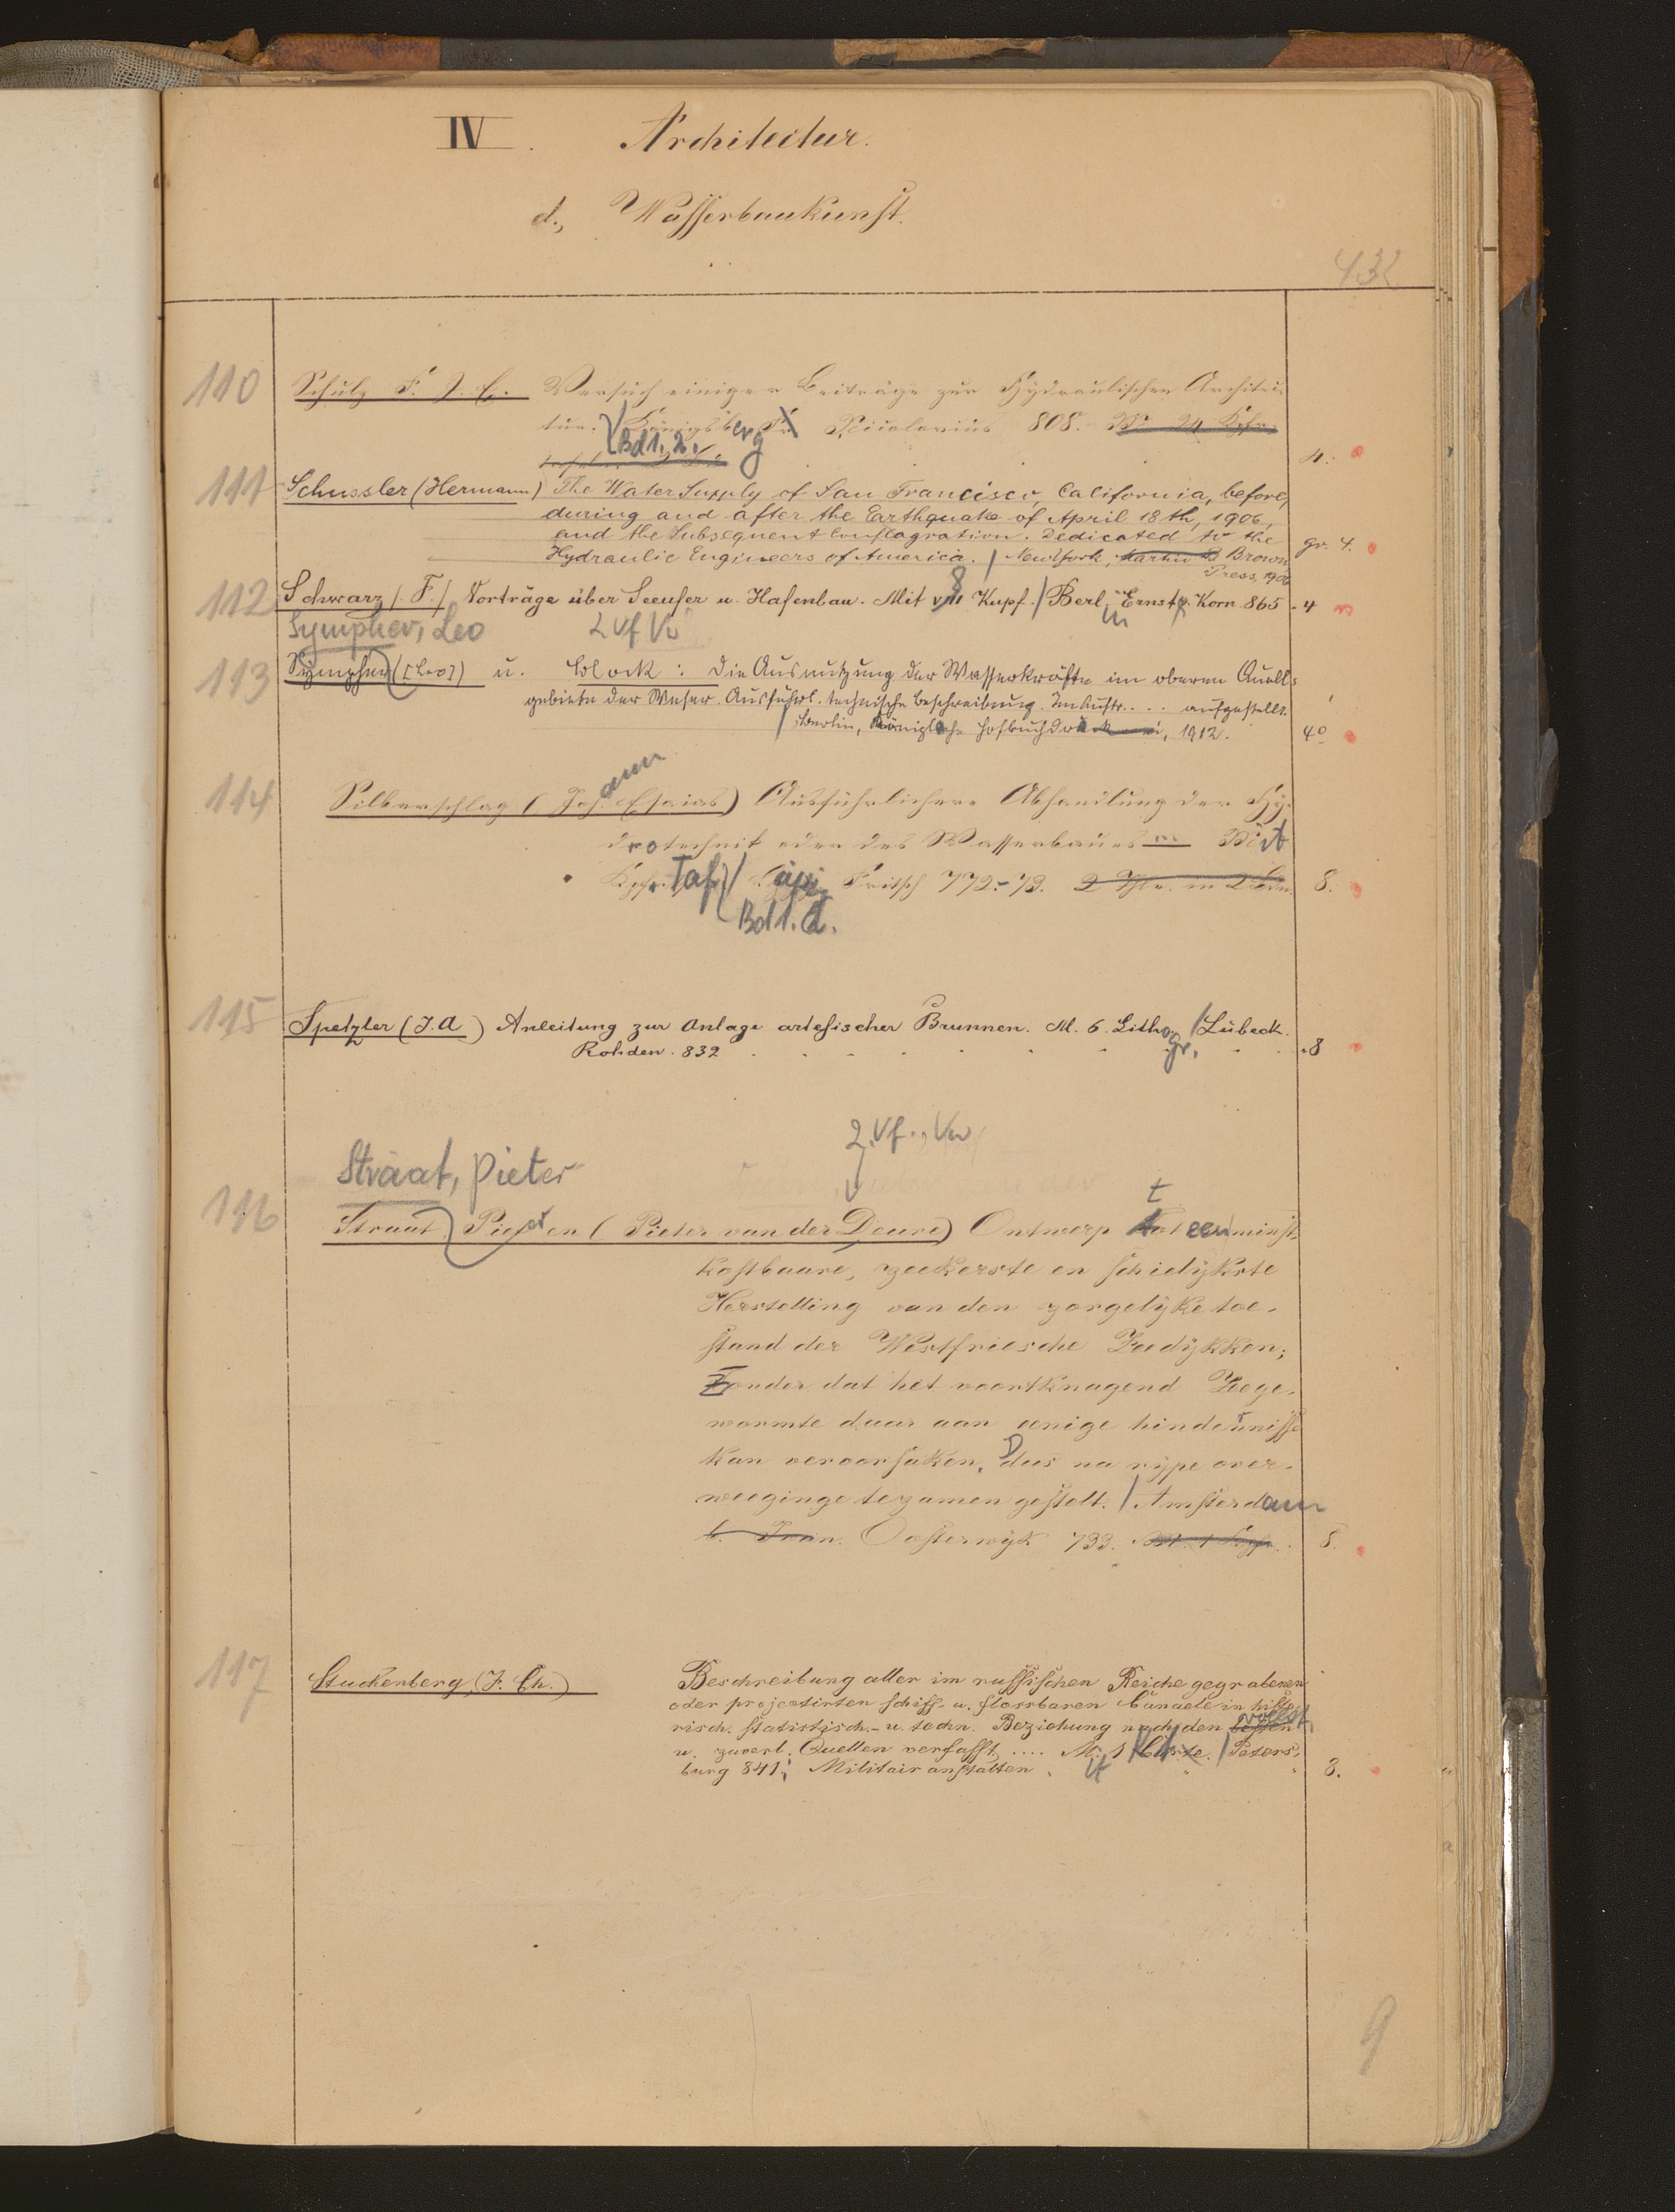 IV. Architectur.
d., Wasserbaukunst.
432
110 Schulz F. J. E. Versuch einiger Beiträge zur Hydraulischen Architec-
tur. Königsberg Nicolovius 808. M. 24 Kpfr.
Bd 1. 2. 4.
111 Schussler (Hermann) The Water Supply of San Francisco, California, before,
during and after the Earthquake of April 18th, 1906,
and the Subsequent Conflagration. Dedicated to the
Hydraulic Engineers of America. / New York, Martin B Brown gr. 4.
Press, 1906
112 Schwarz (F.) Vorträge über Seeufer u. Hafenbau. Mit 8 Kupf. / Berlin, Ernst & Korn 865 4
Sympher, Leo 2 Vf Vw
113 Sympher ([Leo]) u. Block: Die Ausnutzung der Wasserkräfte im oberen Quell-
gebiete der Weser. Ausführl. technische Beschreibung. Im Auftr.... aufgestellt.
/ Berlin, Königliche Hofbuchdruckerei, 1912. 4º
114 Silberschlag (Johann Esaias) Ausführlichere Abhandlung der Hy-
drotechnik oder des Wasserbaues Mit
Kpfr. Taf. / Leipzig Fritsch 772-73. 2 Thle. in 2 Bdn. 8.
Bd 1. 2.
115 Spetzler (J. A) Anleitung zur Anlage artesischer Brunnen. M. 6. Lithogr. / Lübeck.
Rohden. 832 8
2. Vf., Vw
Straat, Pieter
116 Straat, Pieter en (Pieter van der Deure) Ontwerp tot een minst-
kostbaare, zeekerste en schielykste
Herstelling van den zorgelyke toe-
stand der Westfriesche Zeedykken;
Zonder dat het voortknagend Zeege-
wormte daar aan eenige hindernisse
kan veroorsaken. Dus na rype over-
weeginge tezamen gestelt. / Amsterdam
b. Joan. Oosterwyk 733. M. 1 Kpfr. 8.
117 Stuckenberg, (J. Ch.) Beschreibung aller im russischen Reiche gegrabenen
oder projectirten schiff- u. flossbaren Canaele in histo-
risch. statistisch.- u. techn. Beziehung nach den besten vollst.
u. zuverl. Quellen verfasst .... Mit 1 Kt. / Peters-
burg 841; Militairanstalten 8.
9